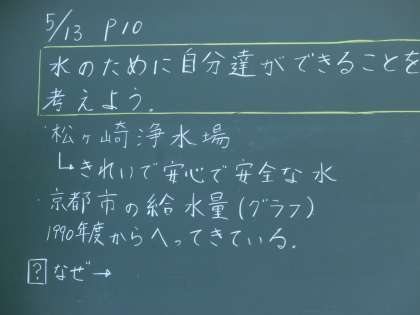 5/13 P10
水のために自分達ができることを
考えよう.
・松ヶ崎浄水場
↳きれいで安心で安全な水
・京都市の給水量(グラフ)
1990年度からへってきている.
? なぜ→